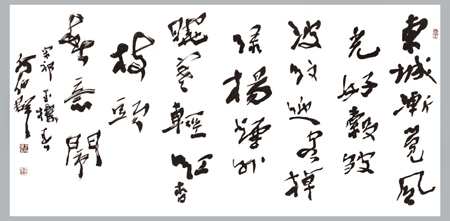 東城漸覺風
光好縠皺
波紋迎客棹
綠楊煙外
曉寒輕紅杏
枝頭
春意鬧
宋祁玉樓春